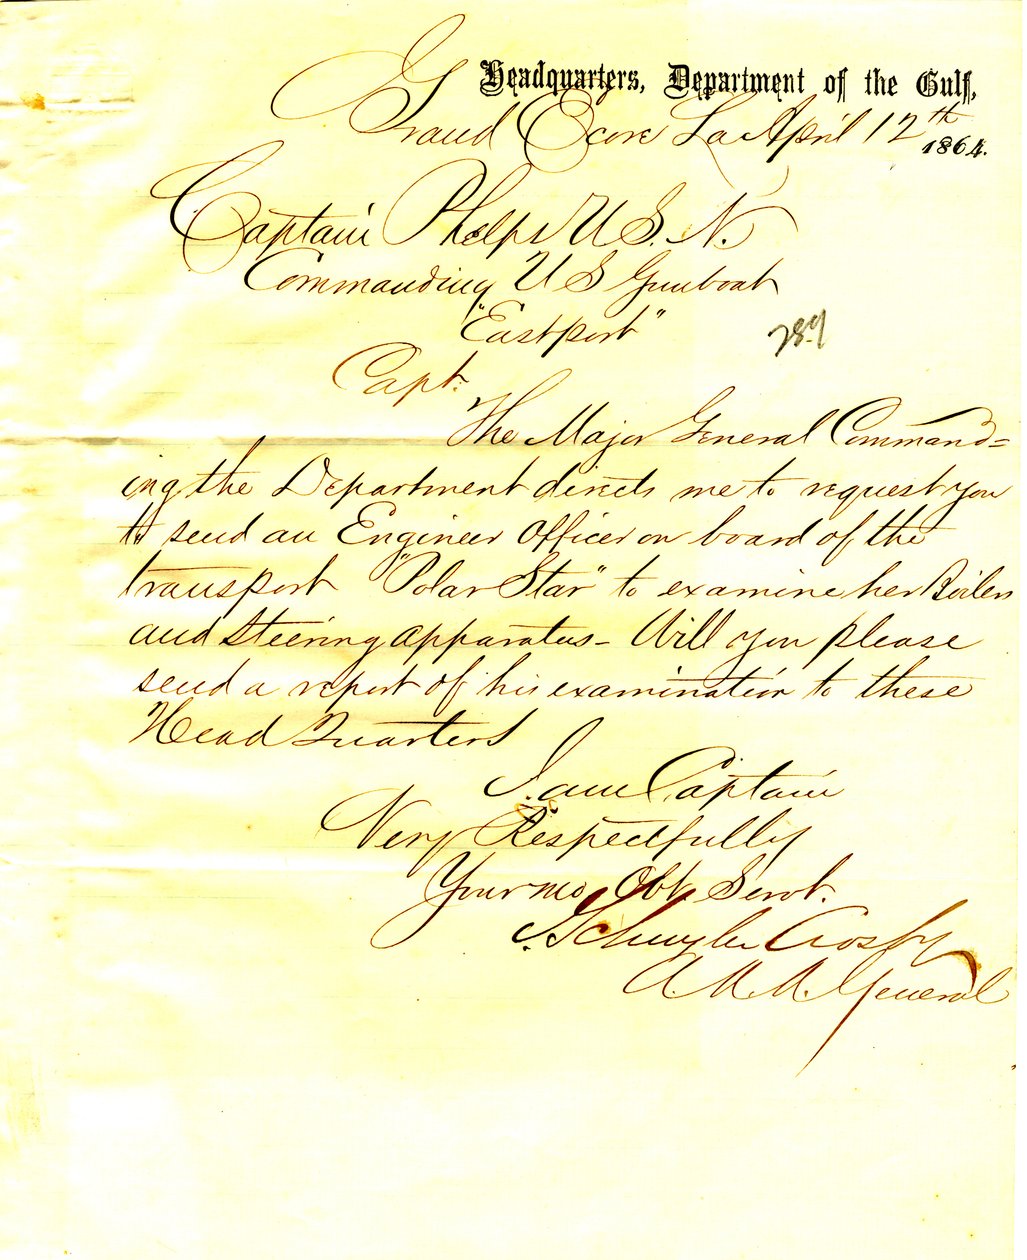 Headquarters, Department of the Gulf,
Grand Ecore La April 12th
1864.
Captain Phelps U S. N.
Commanding U S Gunboat
"Eastport"
289
Capt.
The Major General Command=
ing the Department directs me to request you
to send an Engineer Officer on board of the
transport "Polar Star" to examine her Boilers
and Steering apparatus – Will you please
send a report of his examination to these
Head Quarters
I am Captain
Very Respectfully
Your mo Obt. Servt.
J. Schuyler Crosby
A. A. A. General